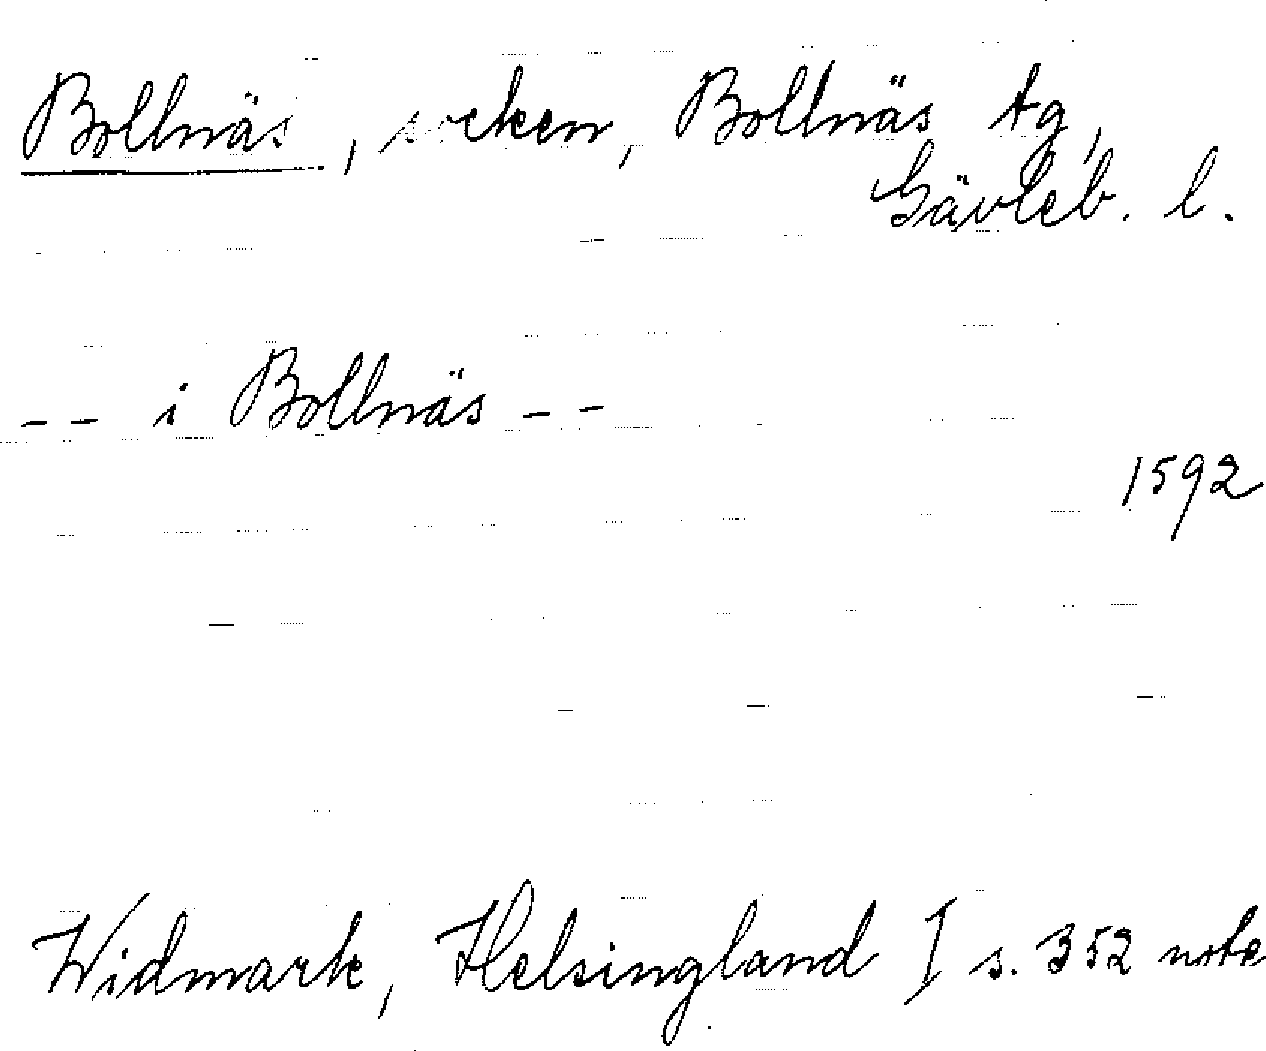 Bollnäs, socken, Bollnäs tg,
Gävleb. l.
-- i Bollnäs --
1592
Widmark, Helsingland I s. 352 note